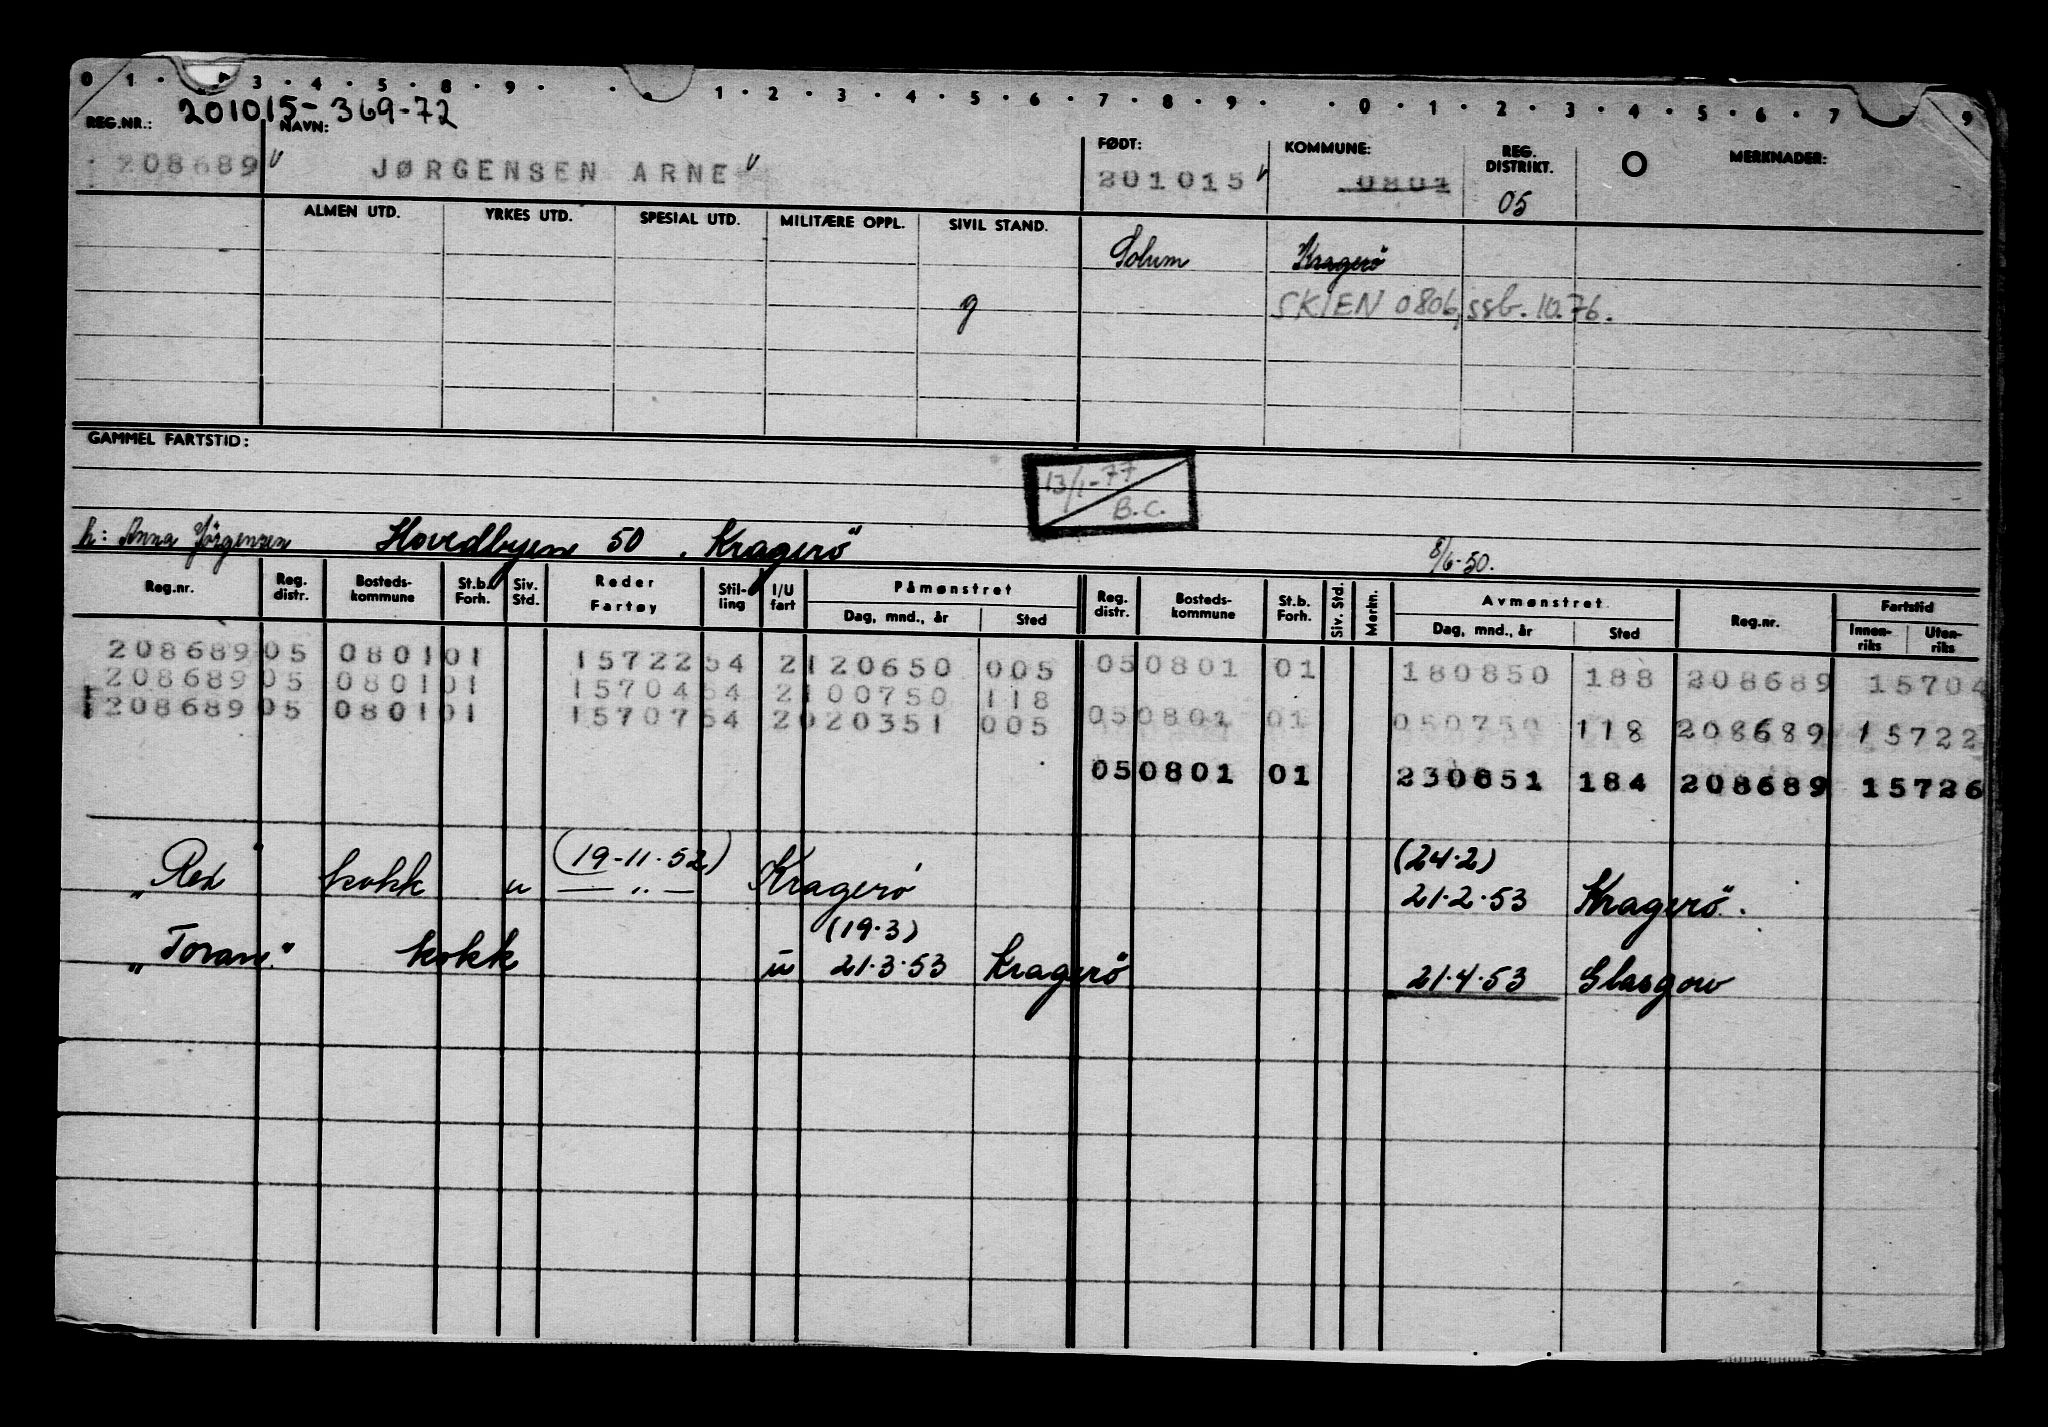 0 1 · 3 · 4 · 5 · 8 · 9 · · 1 · 2 · 3 · 4 · 5 · 6 · 7 · 8 · 9 · · 0 · 1 · 2 · 3 · 4 · 5 · 6 · 7 · 9
201015-369-72
REG.NR.: NAVN: FØDT: KOMMUNE: REG. DISTRIKT. O MERKNADER:
208689 v JØRGENSEN ARNE v 201015 v 0801
05
ALMEN UTD. YRKES UTD. SPESIAL UTD. MILITÆRE OPPL. SIVIL STAND.
Solum Kragerö
g SKIEN 0806, ssb. 10.76.
GAMMEL FARTSTID:
13/1-77
B.C.
h: Anna Jörgensen Hovedbyen 50 . Kragerö 8/6-50.
Reg.nr. Reg. distr. Bosteds-kommune St.b. Forh. Siv. Std. Reder Fartøy Stil-ling I/U fart Påmønstret Reg. distr. Bosteds-kommune St.b. Forh. Siv. Std. Merkn. Avmønstret Reg.nr. Fartstid
Dag, mnd., år Sted Dag, mnd., år Sted Innen-riks Uten-riks
208689 05 0801 01 15722 54 2 120650 005 05 0801 01 180850 188 208689 15704
208689 05 0801 01 15704 54 2 100750 118
208689 05 0801 01 15707 54 2 020351 005 05 0801 01 050750 118 208689 15722
05 0801 01 230851 184 208689 15726
(19-11-52) (24.2)
„Rex" kokk u — „ — Kragerö 21.2.53 Kragerö.
(19.3)
kokk u 21.3.53 Kragerö 21.4.53 Glasgow